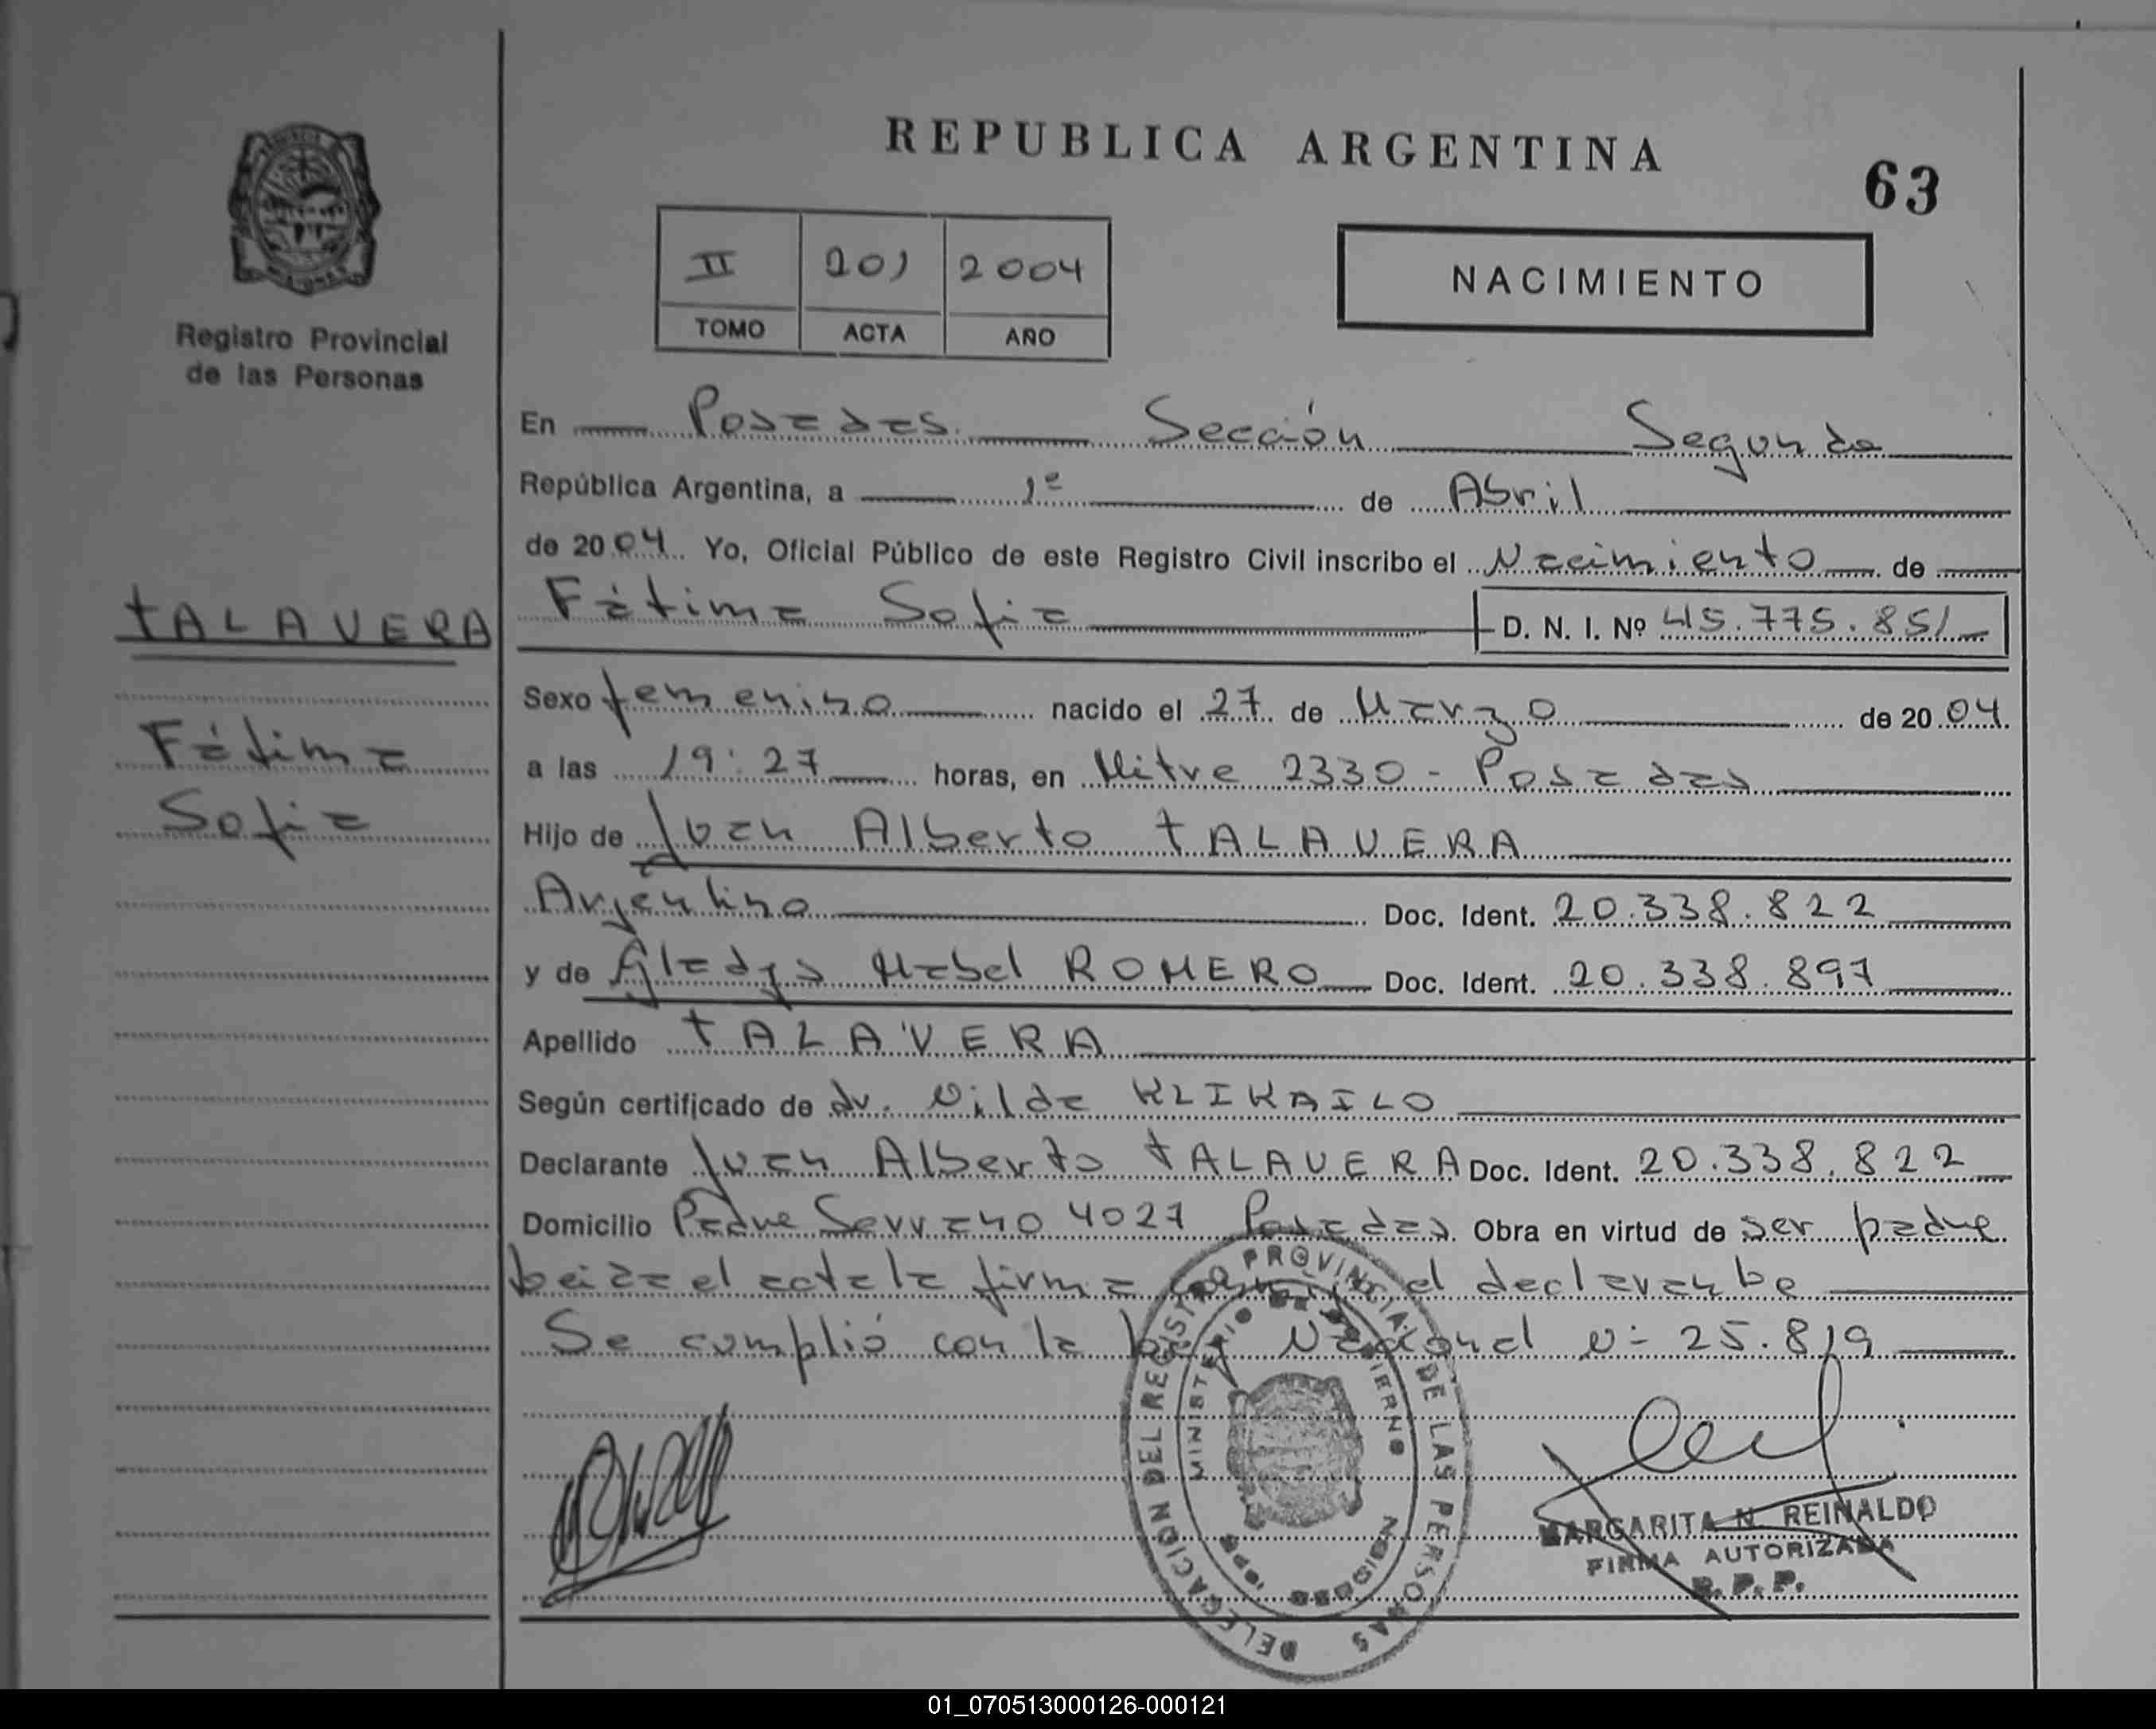 REPUBLICA ARGENTINA
63
Registro Provincial
de las Personas
II 201 2004
TOMO ACTA AÑO
NACIMIENTO
TALAVERA
Fátima
Sofia
En Posadas Sección Segunda
República Argentina, a 1º de Abril
de 2004 Yo, Oficial Público de este Registro Civil inscribo el Nacimiento de
Fátima Sofia D. N. I. Nº 45.775.851
Sexo femenino nacido el 27 de Marzo de 2004
a las 19:27 horas, en Mitre 2330 - Posadas
Hijo de Juan Alberto TALAVERA
Argentino Doc. Ident. 20.338.822
y de Gladys Mabel ROMERO Doc. Ident. 20.338.897
Apellido TALAVERA
Según certificado de dr. Nilda KLIKAILO
Declarante Juan Alberto TALAVERA Doc. Ident. 20.338.822
Domicilio Padre Serrano 4027 Posadas Obra en virtud de ser padre
el acta la firma el declarante
Se cumplió con la ley Nacional Nº 25.819
DELEGACIÓN DEL REGISTRO PROVINCIAL DE LAS PERSONAS
MINISTERIO DE GOBIERNO
MISIONES
MARGARITA N. REINALDO
FIRMA AUTORIZADA
R. P. P.
01_070513000126-000121